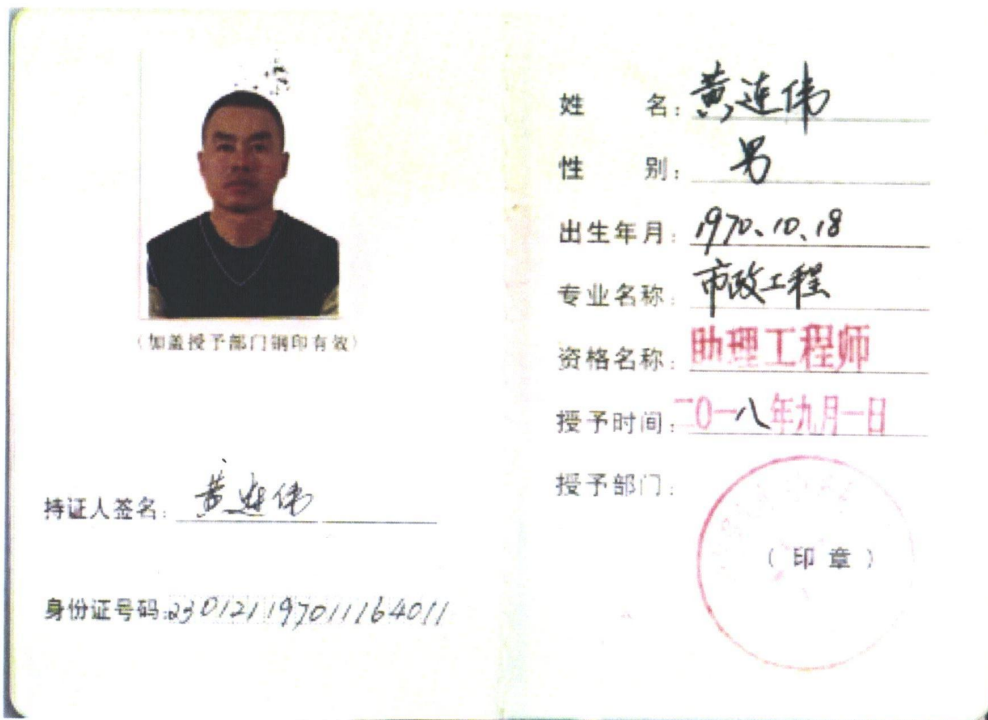 (加盖授予部门钢印有效)
持证人签名: 黄连伟
身份证号码: 230121197011164011
姓 名: 黄连伟
性 别: 男
出生年月: 1970、10、18
专业名称: 市政工程
资格名称: 助理工程师
授予时间: 二0一八年九月一日
授予部门:
(印 章)